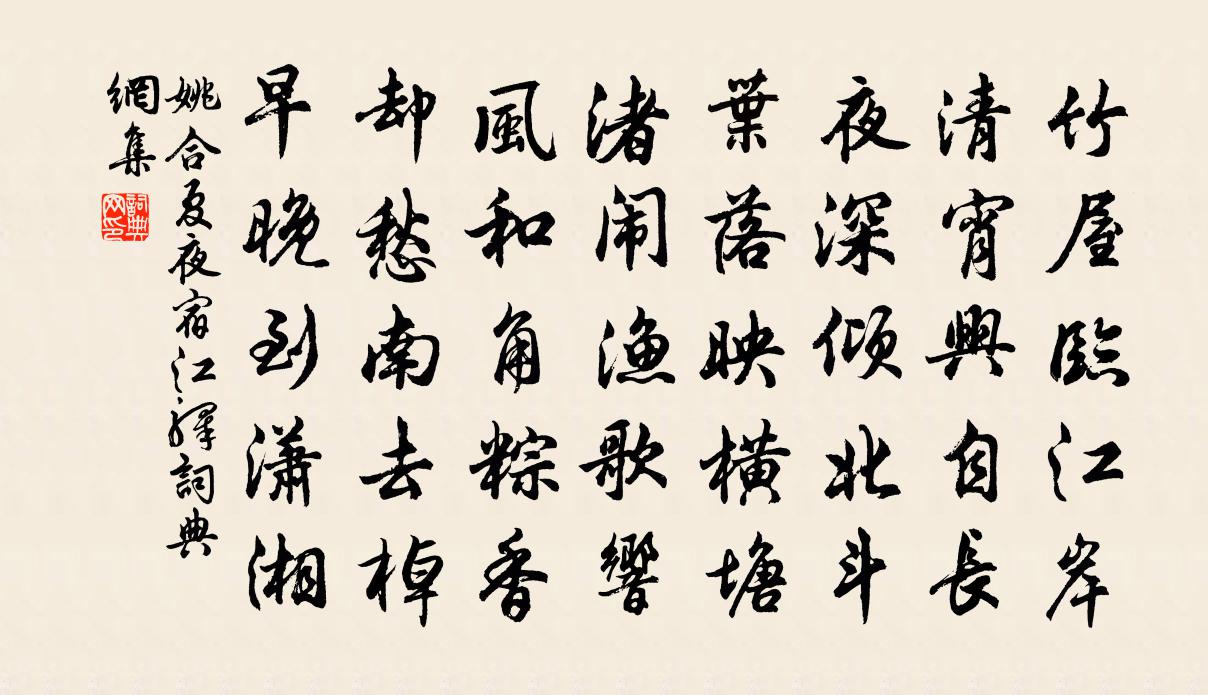 竹屋臨江岸
清宵興自長
夜深傾北斗
葉落映橫塘
渚闹漁歌響
風和角粽香
却愁南去棹
早晚到瀟湘
姚合夏夜宿江驛詞典
網集
詞典網印